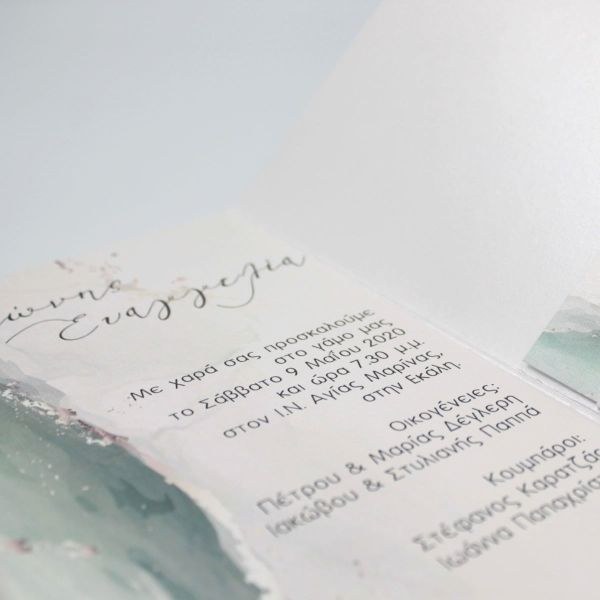 Ευαγγελία
Με χαρά σας προσκαλούμε
στο γάμο μας
το Σάββατο 9 Μαΐου 2020
και ώρα 7.30 μ.μ.
στον Ι.Ν. Αγίας Μαρίνας,
στην Εκάλη.
Οικογένειες:
Πέτρου & Μαρίας Δένλερη
Ιακώβου & Στυλιανής Παππά
Κουμπάροι:
Στέφανος
Ιωάννα